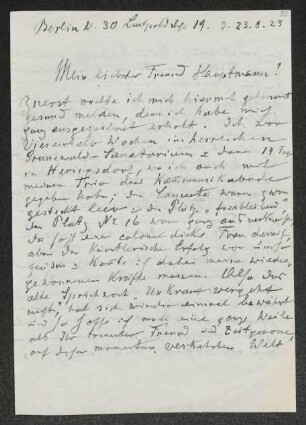 Berlin W. 30 Luitpoldstr 19. d. 23.8.23
Mein liebster Freund Hauptmann!
Zuerst möchte ich mich hiermit gehorsamst
gesund melden, denn ich habe mich
ganz ausgezeichnet erholt. Ich war
Wochen im herrlichen
Grunewald-Sanatorium u dann 19 Tage
in Heringsdorf, wo wir auch mit
meinem Trio drei Kammermusikabende
gegeben haben. Die Concerte waren zwar
leer u die Plätze
den Platz No 16 waren ganz ausverkauft
da saß eine colossal dicke Frau
aber der künstlerische Erfolg war
u konnte ich dabei meine wieder-
gekommenen Kräfte messen. Also das
alte Sprichwort "Unkraut vergeht
nicht" hat sich wieder einmal bewährt
und so hoffe ich noch eine ganze Weile
als Ihr treuester Freund und Zeitgenosse
auf dieser momentan verkehrten Welt